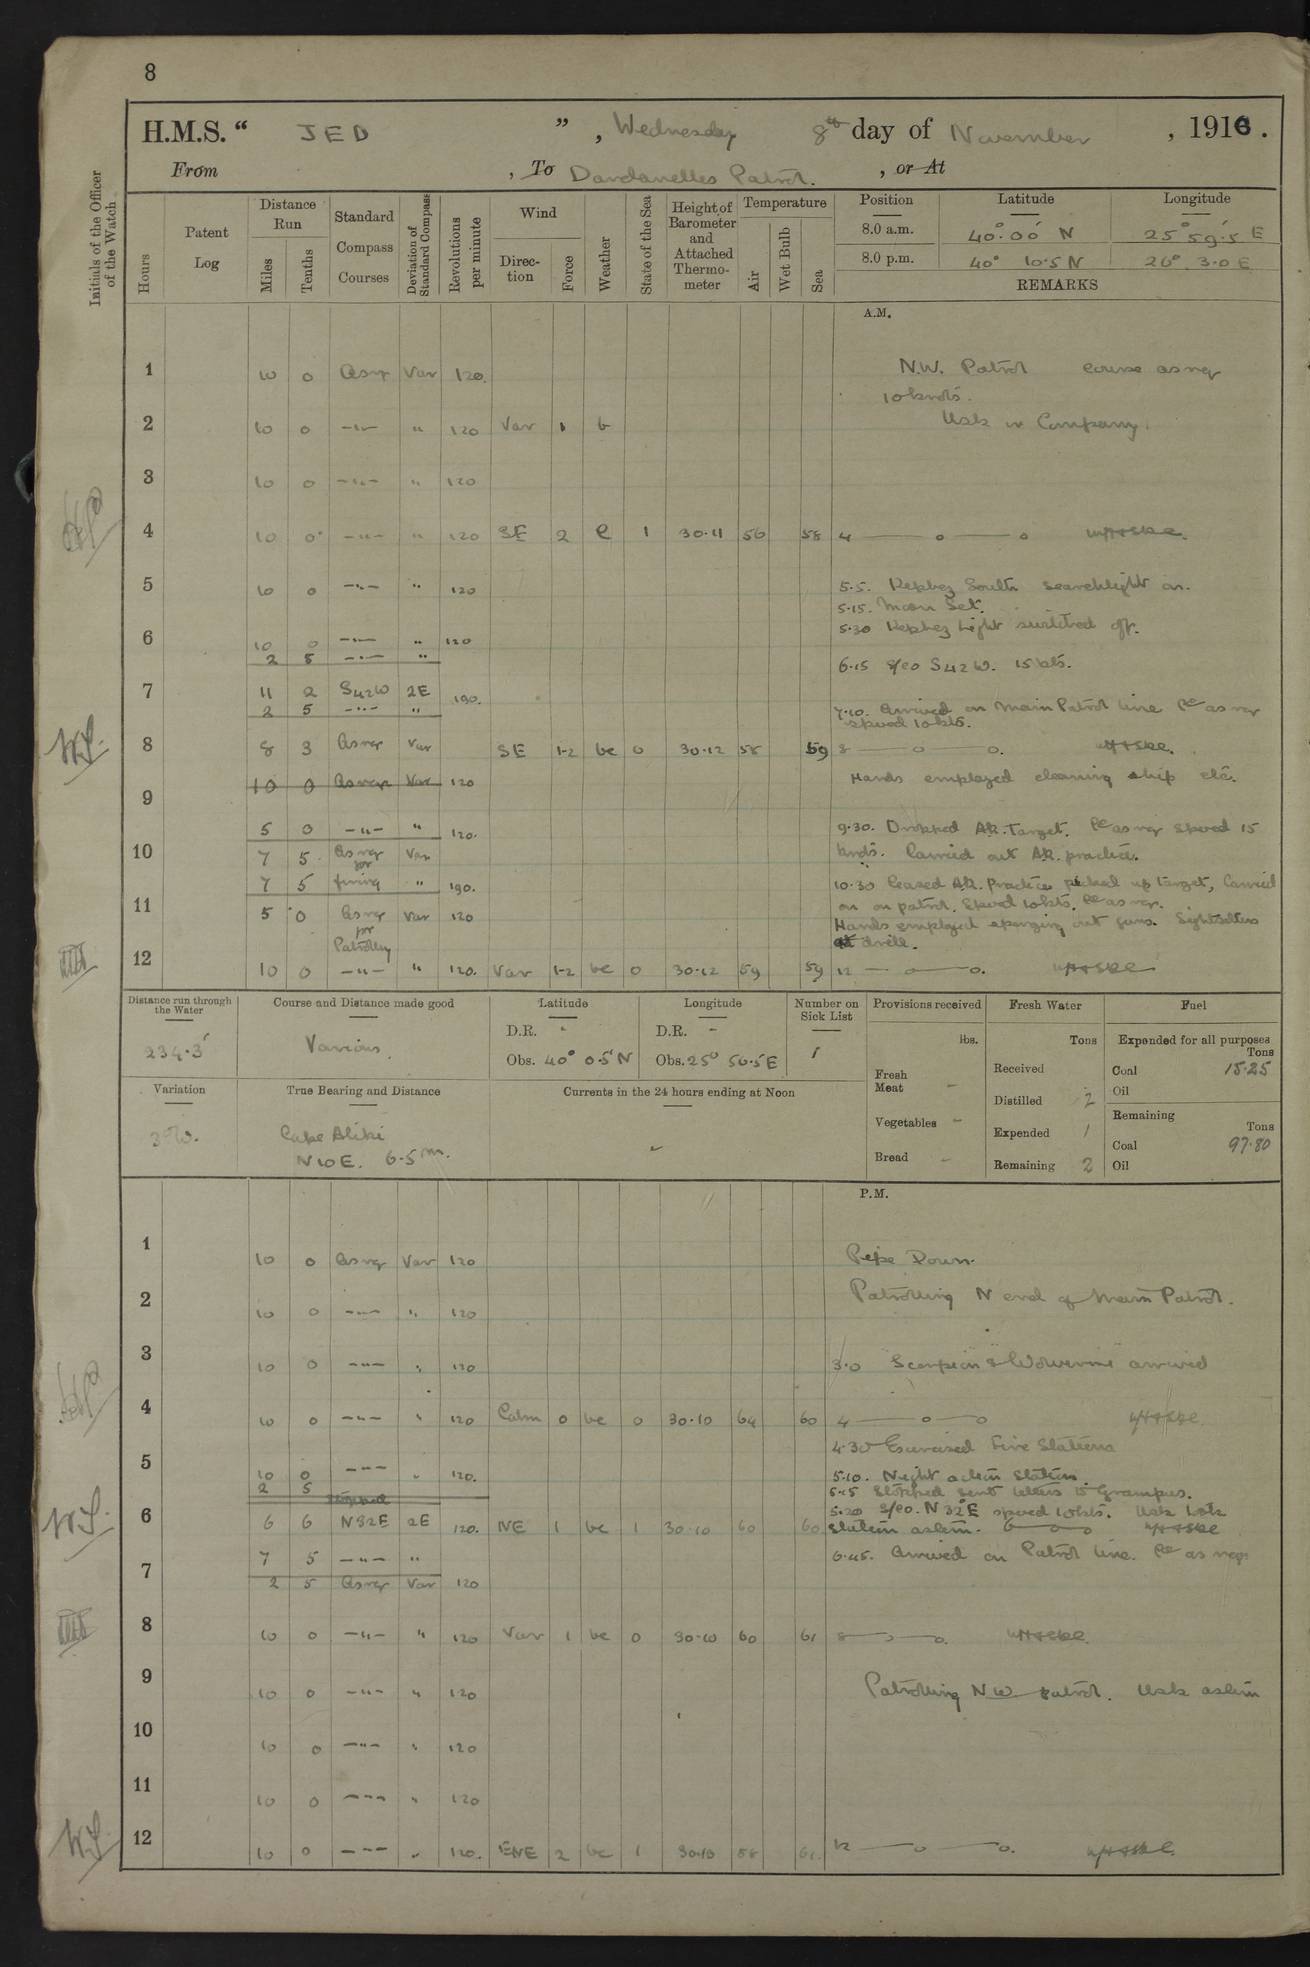 8
H.M.S. “ JED ” , Wednesday 8th day of November , 1916 .
From , To Dardanelles Patrol. , or At
Initials of the Officer of the Watch
Hours
Patent Log
Distance Run
Miles
Tenths
Standard Compass Courses
Deviation of Standard Compass
Revolutions per minute
Wind
Direction
Force
Weather
State of the Sea
Height of Barometer and Attached Thermometer
Temperature
Air
Wet Bulb
Sea
Position Latitude Longitude
8.0 a.m. 40° 00' N 25° 59'.5 E
8.0 p.m. 40° 10.5 N 26° 3.0 E
REMARKS
A.M.
1 10 0 Asreq Var 120. N.W. Patrol course as req
10 knots.
2 10 0 -"- " 120 Var 1 b Usk in Company.
3 10 0 -"- " 120
4 10 0 -"- " 120 SE 2 c 1 30.11 56 58 4 — o — o
5 10 0 -"- " 120 5.5. Kephez South searchlight on.
5.15. Moon Set.
5.30 Kephez Light switched off.
6 10 0 -"- " 120
2 5 -"- " 6.15 S/co S42W. 15 kts.
7 11 2 S42W 2E 190.
2 5 -"- " 7.10. Arrived on Main Patrol line Co as req
speed 10 kts.
8 8 3 Asreq Var SE 1-2 bc 0 30.12 58 59 8 — o — o.
10 0 Asreq Var 120 Hands employed cleaning ship etc.
9
5 0 -"- " 120. 9.30. Dropped A.R. Target. Co as req speed 15
10 7 5 Asreq Var knots. Carried out A.R. practice.
for
7 5 firing " 190. 10.30 Ceased A.R. Practice picked up target, Carried
11 5 0 Asreq Var 120 on on patrol. Speed 10 kts. Co as req.
for Hands employed sponging out guns. Sightsetters
Patrolling at drill.
12 10 0 -"- " 120. Var 1-2 bc 0 30.12 59 59 12 — o — o.
Distance run through the Water
234.3'
Course and Distance made good
Various.
Latitude
D.R. -
Obs. 40° 0.5' N
Longitude
D.R. -
Obs. 25° 56.5 E
Number on Sick List
1
Provisions received
lbs.
Fresh Meat -
Vegetables -
Bread -
Fresh Water
Tons
Received
Distilled 2
Expended 1
Remaining 2
Fuel
Expended for all purposes
Tons
Coal 15.25
Oil
Remaining
Tons
Coal 97.80
Oil
Variation
3°W.
True Bearing and Distance
Cape Aliki
N10E. 6.5 m.
Currents in the 24 hours ending at Noon
-
P.M.
1 10 0 Asreq Var 120 Pipe Down.
2 10 0 -"- " 120 Patrolling N end of Main Patrol.
3 10 0 -"- " 120 3.0 "Scorpion" & "Wolverine" arrived
4 10 0 -"- " 120 Calm 0 bc 0 30.10 64 60 4 — o — o
4.30 Exercised Fire Stations
5 10 0 -"- " 120. 5.10. Night action Stations.
2 5 stopped 5.15 Stopped sent letters to Grampus.
5.20 S/co. N32°E speed 10 kts. Usk took
6 6 6 N32E 2E 120. NE 1 bc 1 30.10 60 60 station astern. 6 — o — o
7 5 -"- " 6.45. Arrived on Patrol line. Co as req.
7 2 5 Asreq Var 120
8 10 0 -"- " 120 Var 1 bc 0 30.10 60 61 8 — o — o.
9 10 0 -"- " 120 Patrolling N.W. patrol. Usk astern
10 10 0 -"- " 120
11 10 0 -"- " 120
12 10 0 -"- " 120. ENE 2 bc 1 30.10 58 61. 12 — o — o.